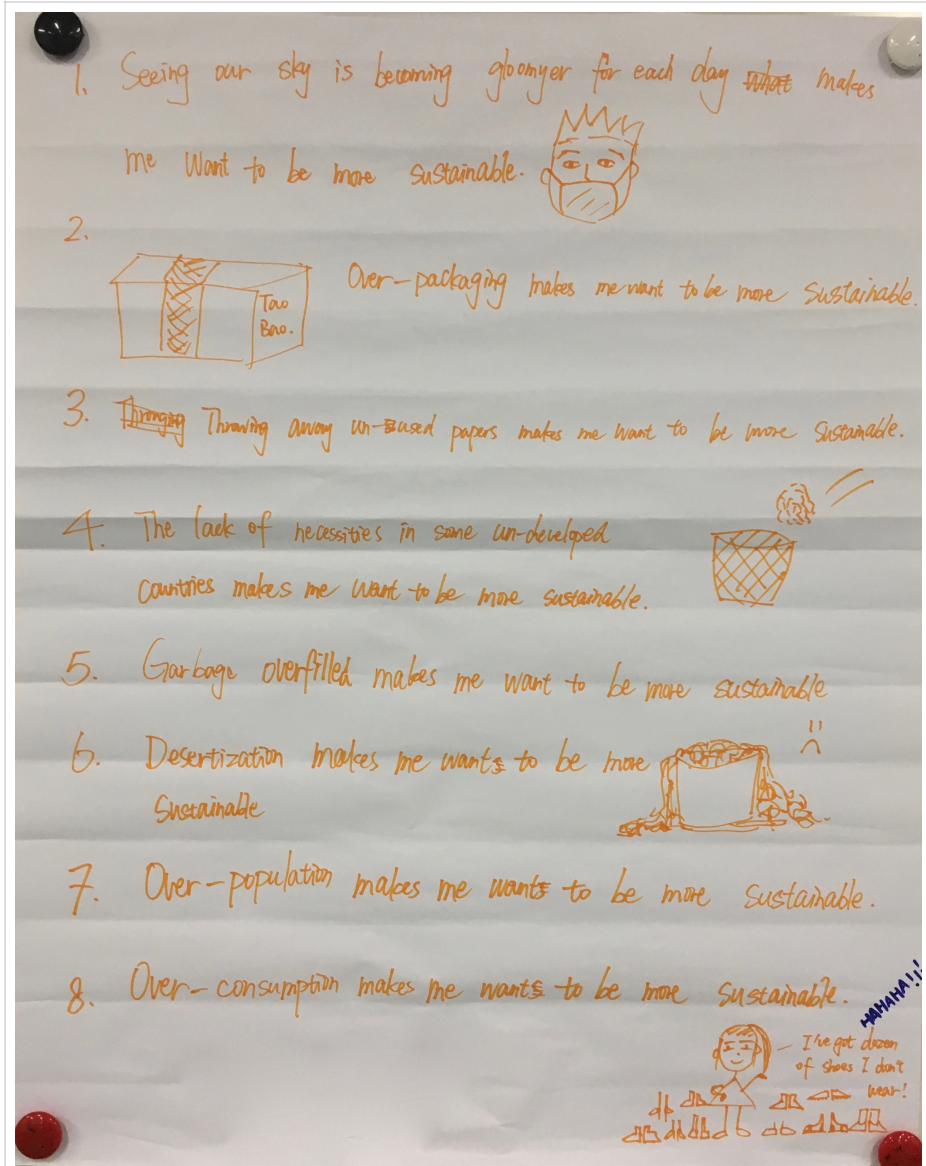 1. Seeing our sky is becoming gloomyer for each day what makes
me want to be more sustainable.
2.
Tao
Bao.
Over-packaging makes me want to be more sustainable.
3. Thronging Throwing away un-used papers makes me want to be more sustainable.
4. The lack of necessities in some un-developed
countries makes me want to be more sustainable.
5. Garbage overfilled makes me want to be more sustainable
6. Desertization makes me wants to be more
Sustainable
7. Over-population makes me wants to be more sustainable.
8. Over-consumption makes me wants to be more sustainable.
HAHAHA!!!
- I've got dozen
of shoes I don't
wear!